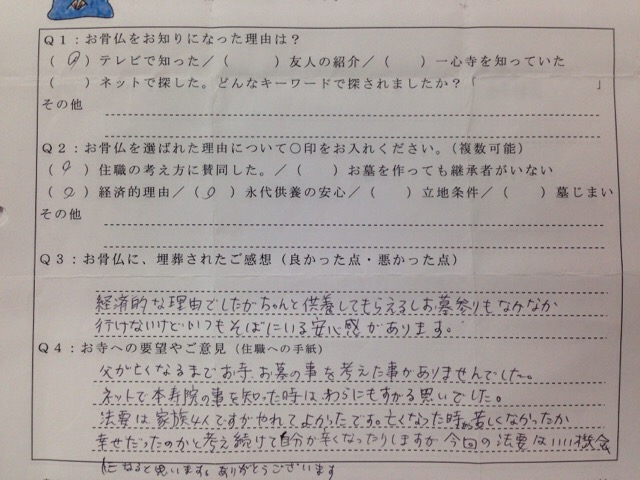 Q1：お骨仏をお知りになった理由は？
（○）テレビで知った／（　）友人の紹介／（　）一心寺を知っていた
（　）ネットで探した。どんなキーワードで探されましたか？「　」
その他
Q2：お骨仏を選ばれた理由について〇印をお入れください。（複数可能）
（○）住職の考え方に賛同した。／（　）お墓を作っても継承者がいない
（○）経済的理由／（○）永代供養の安心／（　）立地条件／（　）墓じまい
その他
Q3：お骨仏に、埋葬されたご感想（良かった点・悪かった点）
経済的な理由でしたがちゃんと供養してもらえるしお墓参りもなかなか
行けないけどいつもそばにいる安心感があります。
Q4：お寺への要望やご意見（住職への手紙）
父が亡くなるまでお寺、お墓の事を考えた事がありませんでした。
ネットで本寿院の事を知った時はわらにもすがる思いでした。
法要は家族4人ですがやれてよかったです。亡くなった時苦しくなかったか
幸せだったのかと考え続けて自分が辛くなったりしますが今回の法要はいい機会
になると思います。ありがとうございます